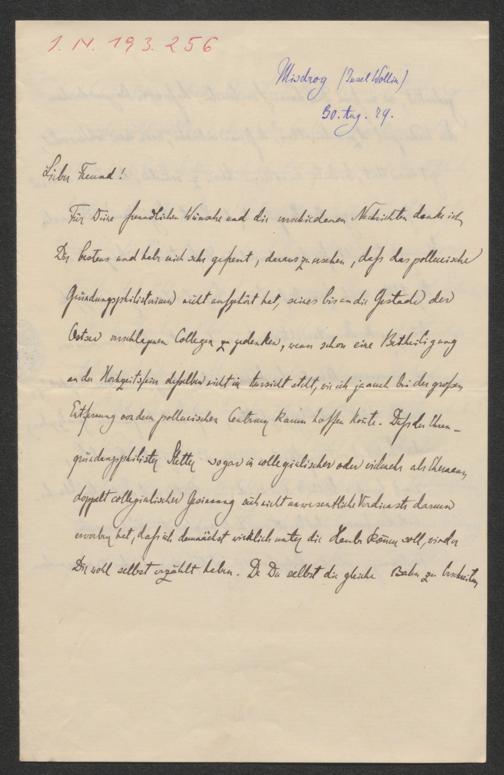 I. N. 193.256
Misdroy (Insel Wollin)
30. Aug. 79.
Lieber Freund!
Für Deine freundlichen Wünsche und die verschiedenen Nachrichten danke ich
Dir bestens und habe mich sehr gefreut, daraus zu ersehen, daß das
nicht aufgehört hat, seines bis an die Gestade der
Ostsee verschlagenen Collegen zu gedenken, wenn schon eine Betheiligung
an der Hochzeitsfeier desselben nicht in Aussicht steht, wie ich ja auch bei der großen
Entfernung von dem Centrum kaum hoffen konnte. Daß der
sogar in collegialischer oder vielmehr als
doppelt collegialischer Gesinnung sich nicht unwesentliche Verdienste darum
erworben hat, daß ich demnächst wirklich unter die Haube kommen soll, wird er
Dir wohl selbst erzählt haben. Da Du selbst die gleiche Bahn zu beschreiten